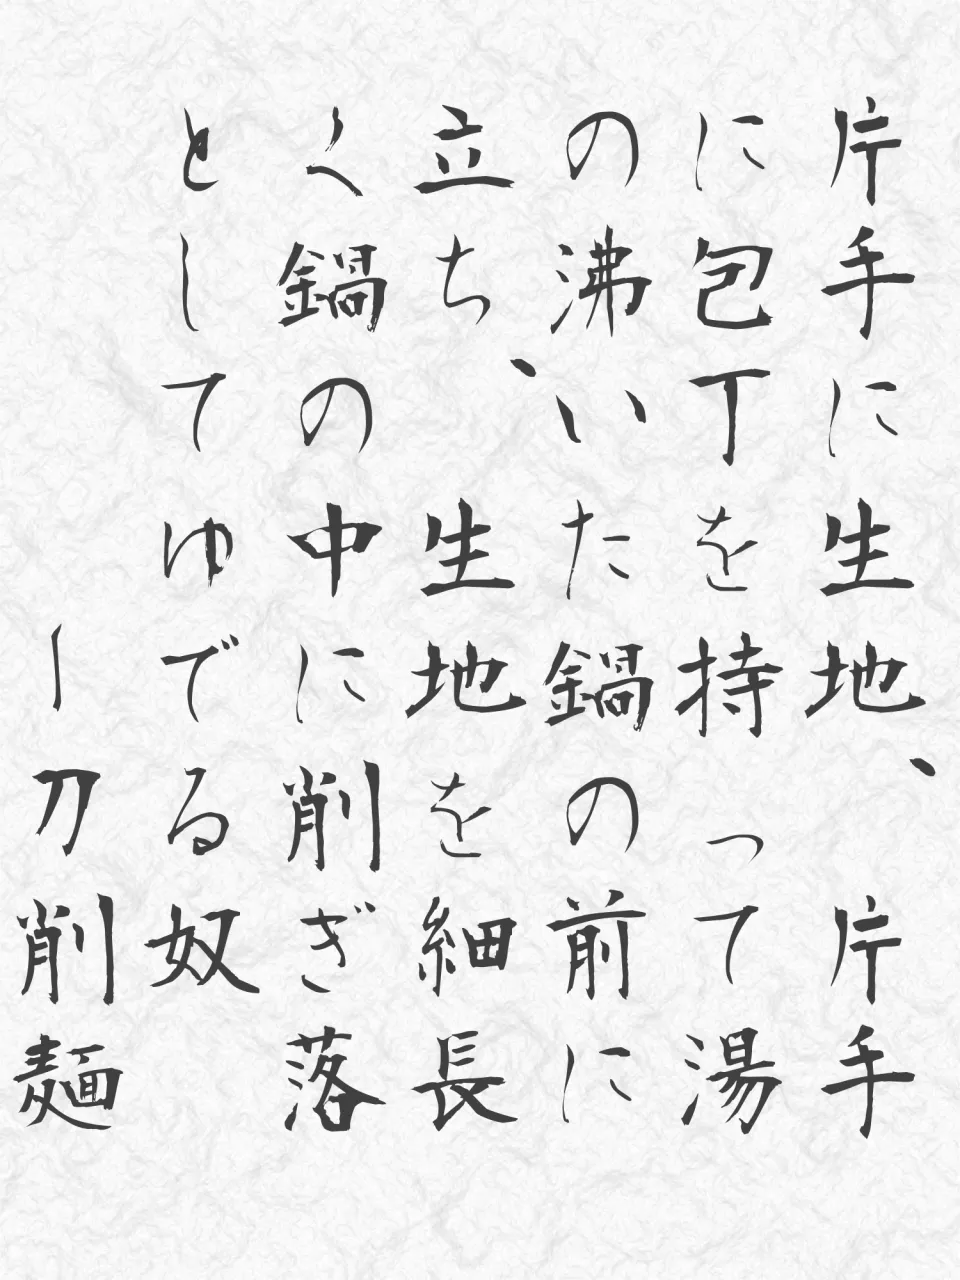 片手に生地、片手
に包丁を持って湯
の沸いた鍋の前に
立ち、生地を細長
く鍋の中に削ぎ落
としてゆでる奴
ー刀削麺